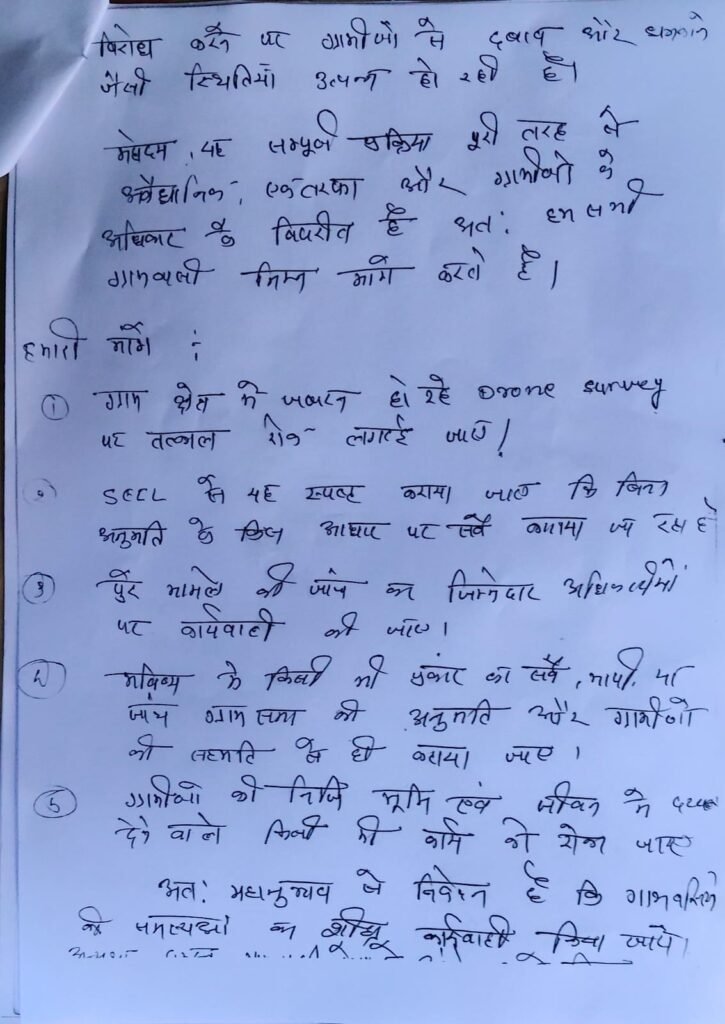 विरोध करने पर ग्रामीणों से दबाव और धमकाने
जैसी स्थितियाँ उत्पन्न हो रही है।
महोदय, यह सम्पूर्ण प्रक्रिया पूरी तरह से
अवैधानिक, एकतरफा और ग्रामीणों के
अधिकार के विपरीत है अतः हम सभी
ग्रामवासी निम्न मांगे करते है।
हमारी मांगे :
① ग्राम क्षेत्र में जबरन हो रहे Drone survey
पर तत्काल रोक लगाई जाए!
SECL से यह स्पष्ट कराया जाए कि बिना
अनुमति के किस आधार पर सर्वे कराया जा रहा है
③ पुरे मामले की जांच कर जिम्मेदार अधिकारीयों
पर कार्यवाही की जाए।
भविष्य में किसी भी प्रकार का सर्वे, मापी, या
जांच ग्राम सभा की अनुमति और ग्रामीणों
की सहमति से ही कराया जाए।
⑤ ग्रामीणों की निजि भूमि एवं जीवन में दखल
देने वाले किसी भी कार्य को रोका जाए
अतः महानुभाव से निवेदन है कि ग्रामवासियों
की समस्याओं का शीघ्र कार्यवाही किया जाये।